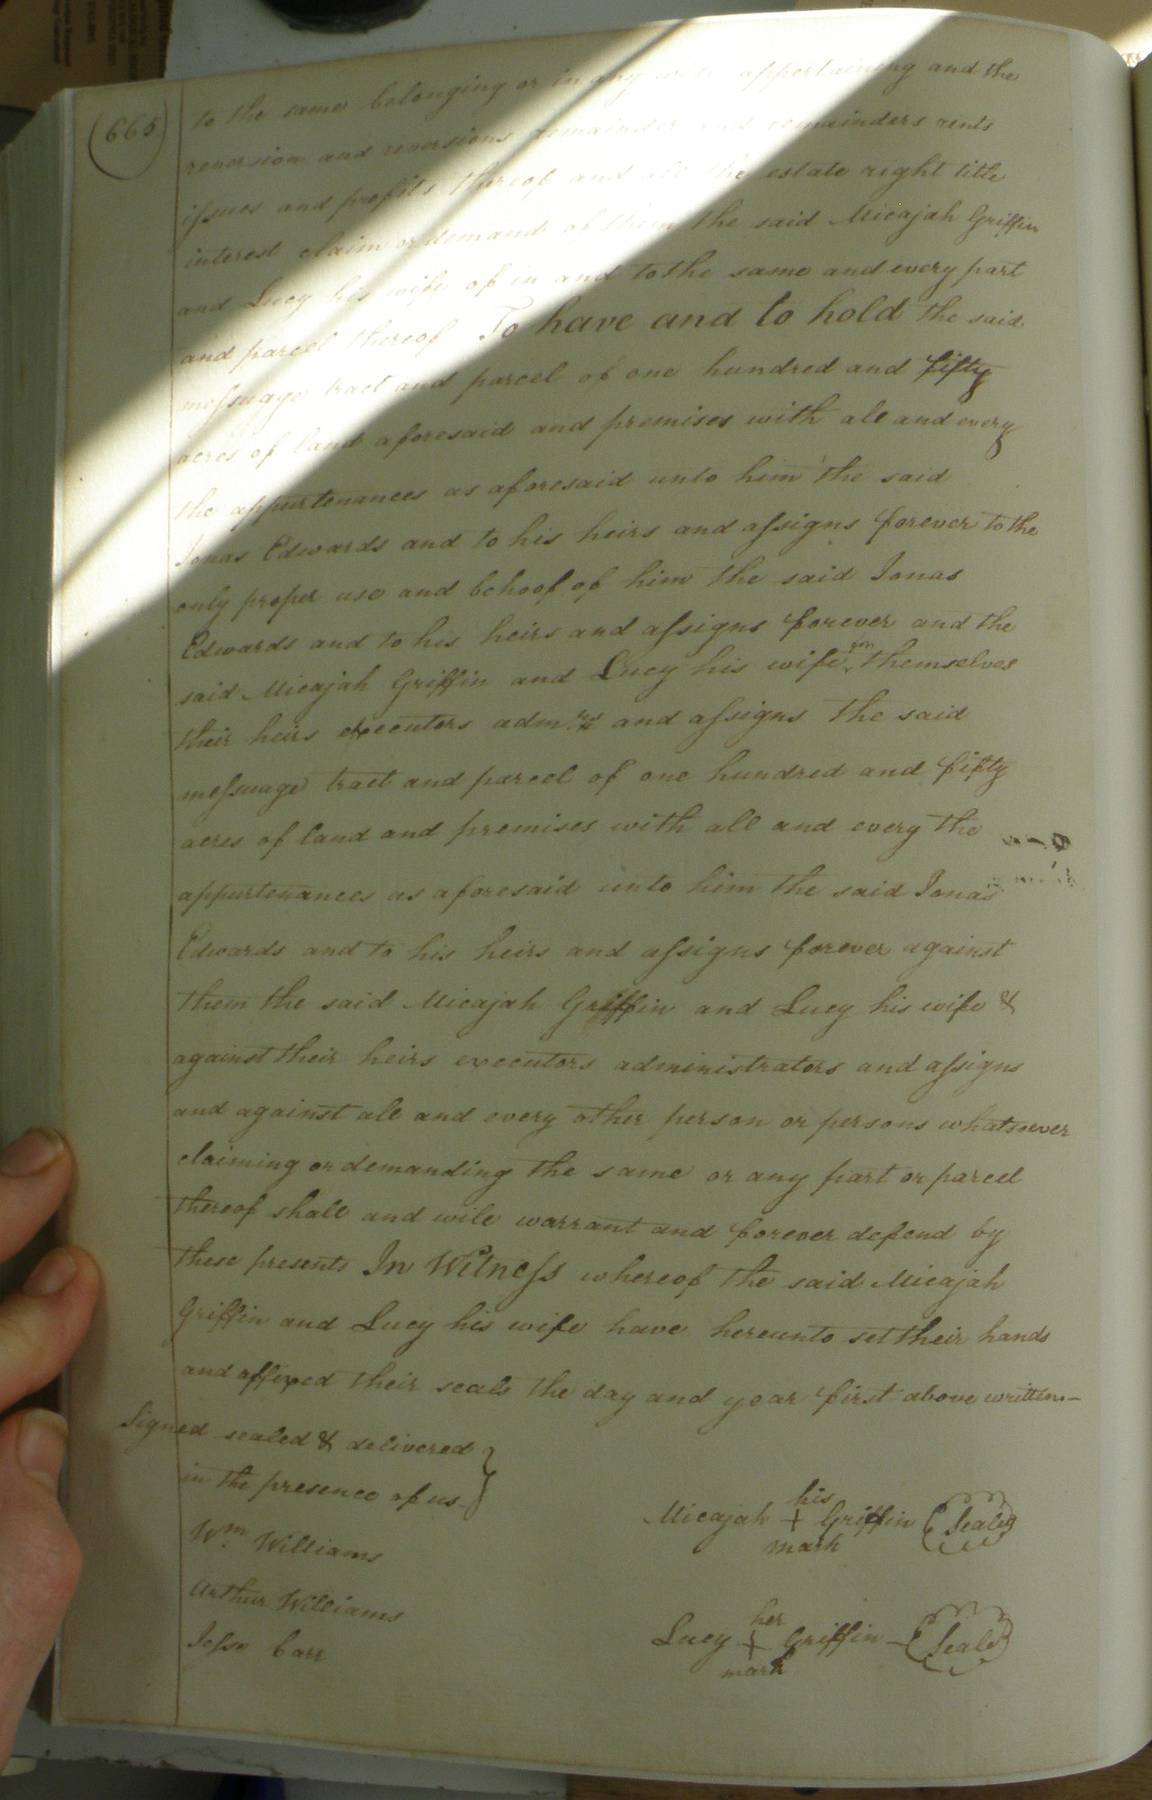 (665)
to the same belonging or in any wise appertaining and the
reversion and reversions remainder and remainders rents
issues and profits thereof and all the estate right title
interest claim or demand of them the said Micajah Griffin
and Lucy his wife of in and to the same and every part
and parcel thereof To have and to hold the said
messuage tract and parcel of one hundred and fifty
acres of land aforesaid and premises with all and every
the appurtenances as aforesaid unto him the said
Jonas Edwards and to his heirs and assigns forever to the
only proper use and behoof of him the said Jonas
Edwards and to his heirs and assigns forever and the
said Micajah Griffin and Lucy his wife for themselves
their heirs executors admrs and assigns the said
messuage tract and parcel of one hundred and fifty
acres of land and premises with all and every the
appurtenances as aforesaid unto him the said Jonas
Edwards and to his heirs and assigns forever against
them the said Micajah Griffin and Lucy his wife &
against their heirs executors administrators and assigns
and against all and every other person or persons whatsoever
claiming or demanding the same or any part or parcel
thereof shall and will warrant and forever defend by
these presents In Witness whereof the said Micajah
Griffin and Lucy his wife have hereunto set their hands
and affixed their seals the day and year first above written—
Signed sealed & delivered
in the presence of us
Wm. Williams
Arthur Williams
Jesse Carr
his
Micajah + Griffin (Seal)
mark
her
Lucy + Griffin (Seal)
mark